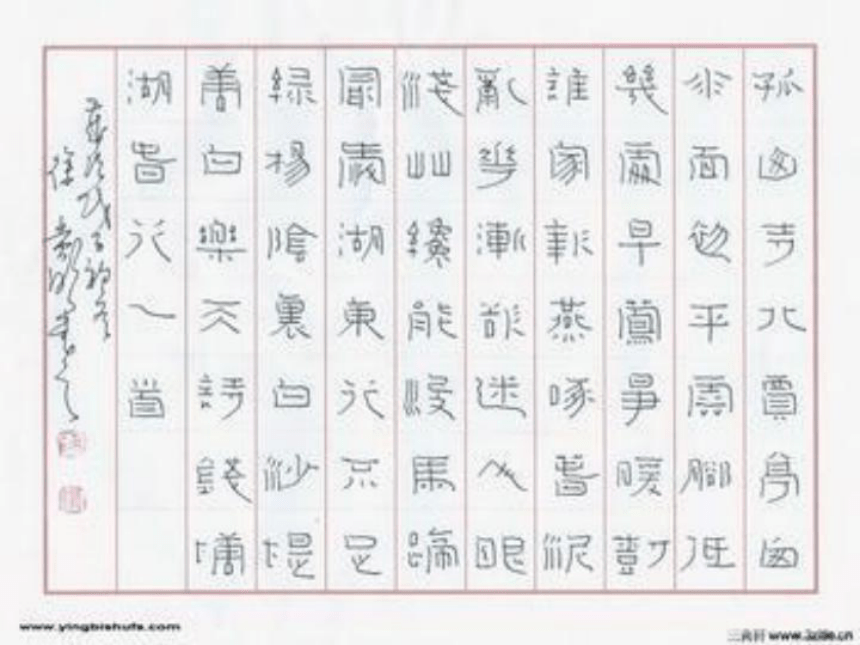 孤山寺北賈亭西
水面初平雲腳低
幾處早鶯爭暖樹
誰家新燕啄春泥
亂華漸欲迷人眼
淺艸纔能沒馬蹄
最愛湖東行不足
綠楊陰裏白沙堤
唐白樂天詩錢塘
湖春行一首
徐
www.yingbishufa.com